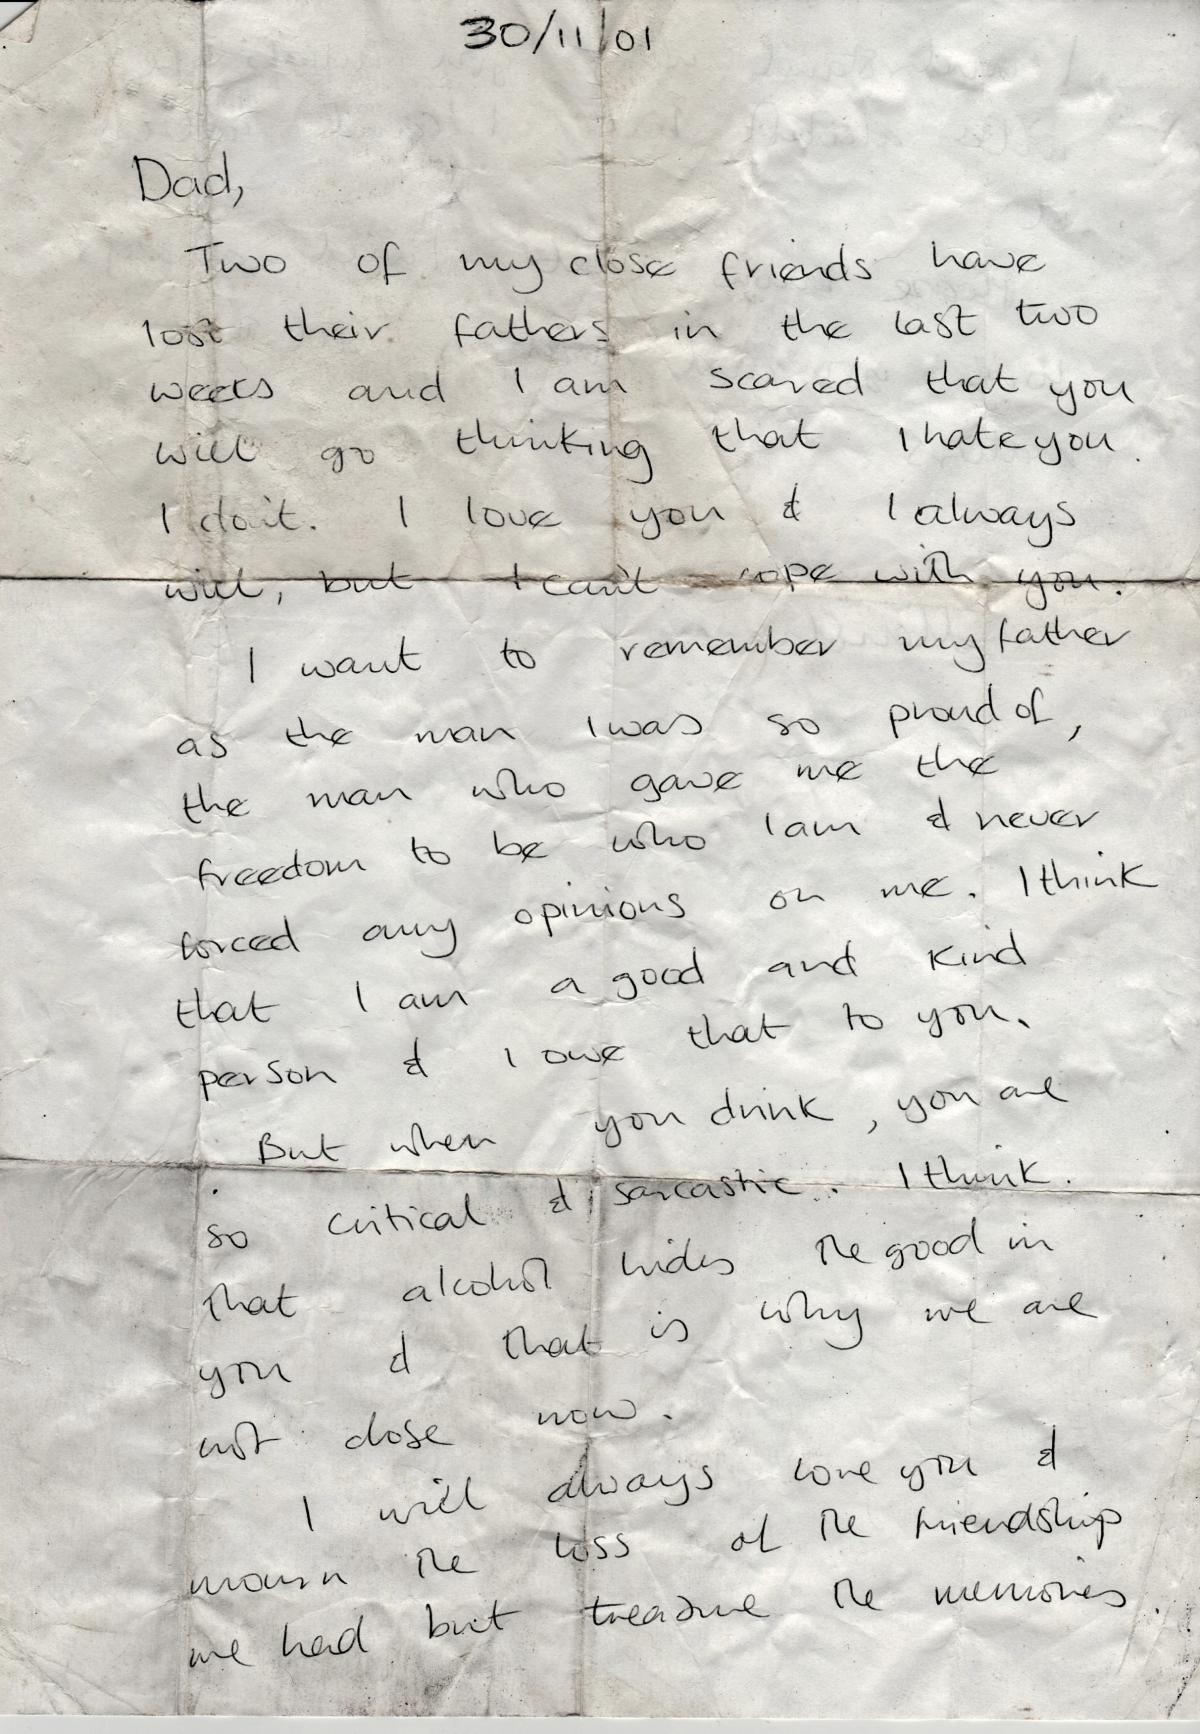 30/11/01
Dad,
Two of my close friends have
lost their fathers in the last two
weeks and I am scared that you
will go thinking that I hate you.
I don't. I love you & I always
will, but I can't cope with you.
I want to remember my father
as the man I was so proud of,
the man who gave me the
freedom to be who I am & never
forced any opinions on me. I think
that I am a good and kind
person & I owe that to you.
But when you drink, you are
so critical & sarcastic. I think
that alcohol hides the good in
you & that is why we are
not close now.
I will always love you &
mourn the loss of the friendship
we had but treasure the memories.